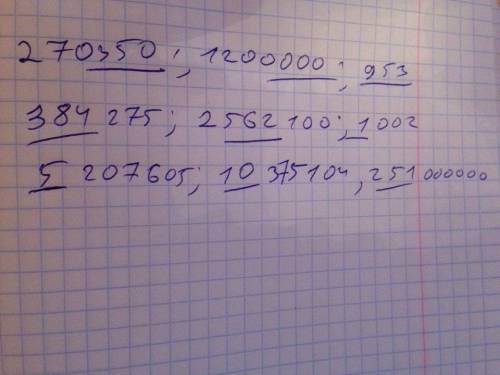 270350; 1200000; 953
384 275; 2562 100; 1002
5 207605; 10 375104, 251 000000